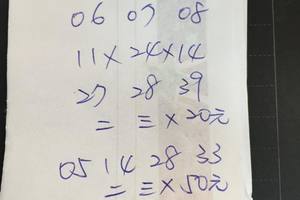 06 07 08
11×24×14
27 28 39
= 三×20元
05 14 28 33
= 三×50元